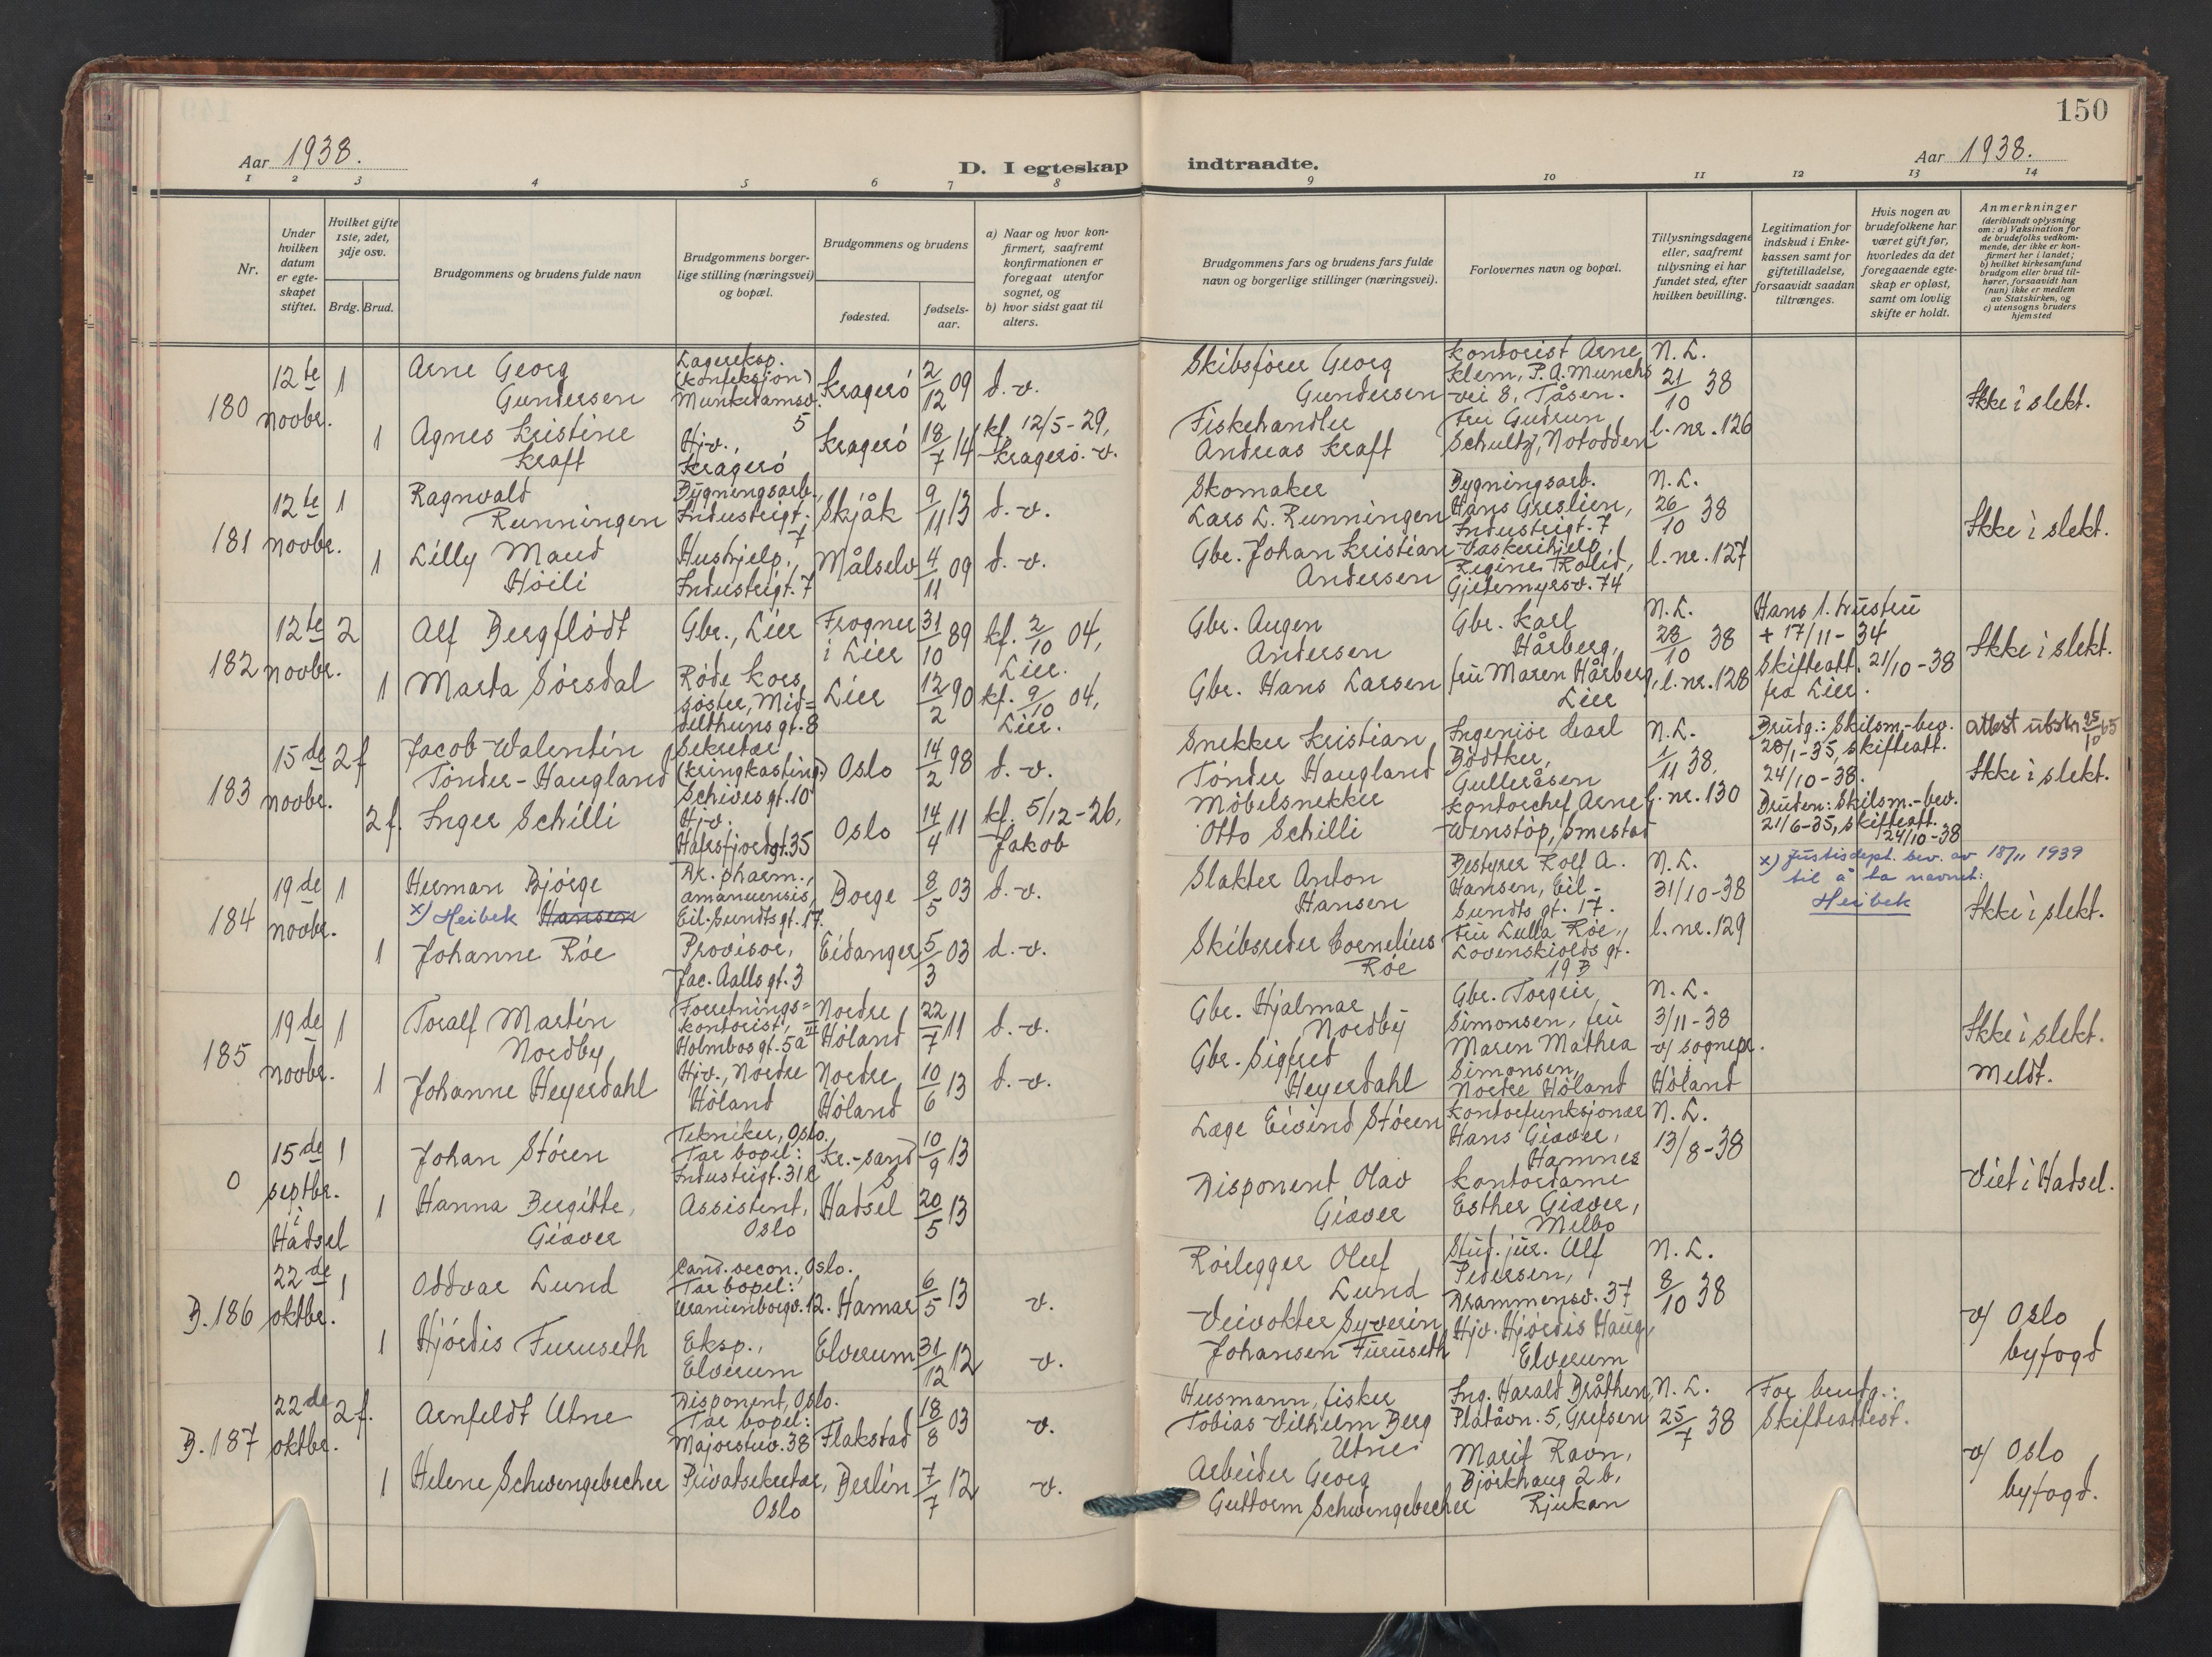 150
Aar 1938.
D. I egteskap indtraadte.
Aar 1938.
1 2 3 4 5 6 7 8 9 10 11 12 13 14
Nr.
Under hvilken datum er egteskapet stiftet.
Hvilket gifte 1ste, 2det, 3dje osv.
Brdg. Brud.
Brudgommens og brudens fulde navn
Brudgommens borgerlige stilling (næringsvei) og bopæl.
Brudgommens og brudens
fødested.
fødselsaar.
a) Naar og hvor konfirmert, saafremt konfirmationen er foregaat utenfor sognet, og
b) hvor sidst gaat til alters.
Brudgommens fars og brudens fars fulde navn og borgerlige stillinger (næringsvei).
Forlovernes navn og bopæl.
Tillysningsdagene eller, saafremt tillysning ei har fundet sted, efter hvilken bevilling.
Legitimation for indskud i Enkekassen samt for giftetilladelse, forsaavidt saadan tiltrænges.
Hvis nogen av brudefolkene har været gift før, hvorledes da det foregaaende egteskap er opløst, samt om lovlig skifte er holdt.
Anmerkninger
(deriblandt oplysning om: a) Vaksination for de brudefolks vedkommende, der ikke er konfirmert her i landet; b) hvilket kirkesamfund brudgom eller brud tilhører, forsaavidt han (hun) ikke er medlem av Statskirken, og c) utensogns bruders hjemsted
180
12te novbr.
1
Arne Georg Gundersen
Lagereksp. (konfeksjon) Munkedamsv. 5
Kragerö
2/12 09
d. v.
Skibsförer Georg Gundersen
Kontorist Arne Klem, P. A. Munchs vei 8, Tåsen.
N. L. 21/10 38
l. nr. 126
Ikke i slekt.
1
Agnes Kristine Kraft
Hjv., Kragerö
Kragerö
18/7 14
kf. 12/5-29, Kragerö. v.
Fiskehandler Andreas Kraft
Fru Gudrun Schultz, Notodden
181
12te novbr.
1
Ragnvald Runningen
Bygningsarb., Industrigt. 7
Skjåk
9/11 13
d. v.
Skomaker Lars L. Runningen
Bygningsarb. Hans Greslien, Industrigt. 7
N. L. 26/10 38
l. nr. 127
Ikke i slekt.
1
Lilly Maud Höili
Hushjelp., Industrigt. 7
Målselv
4/11 09
d. v.
Gbr. Johan Kristian Andersen
Vaskerihjelp Regine Rolid, Gjetemyrsv. 74
182
12te novbr.
2
Alf Bergflödt
Gbr., Lier
Frogner i Lier
31/10 89
kf. 2/10 04, Lier.
Gbr. Augen Andersen
Gbr. Karl Hårberg,
N. L. 28/10 38
l. nr. 128
Hans 1. hustru + 17/11-34
Skifteatt. 21/10-38 fra Lier.
Ikke i slekt.
1
Marta Sörsdal
Röde Kors söster, Middelthuns gt. 8
Lier
12/2 90
kf. 9/10 04, Lier.
Gbr. Hans Larsen
fru Maren Hårberg, Lier
183
15de novbr.
2f
Jacob Walentin Tönder-Haugland
Sekretær (kringkasting) Schives gt. 10
Oslo
14/2 98
d. v.
Snekker Kristian Tönder Haugland
Ingeniör Carl Bödtker, Gulleråsen
N. L. 1/11 38.
l. nr. 130
Brudg.: Skilsm.-bev. 28/1-35, skifteatt. 24/10-38.
Ikke i slekt.
2f.
Inger Schilli
Hjv. Hafrsfjordgt. 35
Oslo
14/4 11
kf. 5/12-26, Jakob
Möbelsnekker Otto Schilli
Kontorchef Arne Wenstöp, Smestad
Bruden: Skilsm.-bev. 21/6-35, skifteatt. 24/10-38
184
19de novbr.
1
Herman Björge x) Heibek Hansen
Dr. pharm., amanuensis, Eil. Sundts gt. 17.
Borge
8/5 03
d. v.
Slakter Anton Hansen
Bestyrer Rolf A. Hansen, Eil. Sundts gt. 17.
N. L. 31/10-38
l. nr. 129
x) Justisdept. bev. av 18/11 1939 til å ta navnet: Heibek
Ikke i slekt.
1
Johanne Röe
Provisor, Jac. Aalls gt. 3
Eidanger
5/3 03
d. v.
Skibsreder Cornelius Röe
Fru Lulla Röe, Lövenskiolds gt. 19 B
185
19de novbr.
1
Toralf Martin Nordby
Forretningskontorist, Holmbos gt. 5a III
Nordre Höland
22/7 11
d. v.
Gbr. Hjalmar Nordby
Gbr. Torgeir Simonsen, fru
N. L. 3/11-38 v/ sognepr. Höland
Ikke i slekt.
Meldt.
1
Johanne Heyerdahl
Hjv., Nordre Höland
Nordre Höland
10/6 13
d. v.
Gbr. Sigfred Heyerdahl
Maren Mathea Simonsen, Nordre Höland
0
15de septbr. i Hadsel
1
Johan Stören
Tekniker, Oslo. Tar bopel: Industrigt. 31 c
Kr.-sand S
10/9 13
Læge Eivind Stören
Kontorfunksjonær Hans Giæver, Hamnes
N. L. 13/8-38
Viet i Hadsel.
1
Hanna Birgitte Giæver
Assistent, Oslo
Hadsel
20/5 13
Disponent Olav Giæver
Kontordame Esther Giæver, Melbo
B. 186
22de oktbr.
1
Oddvar Lund
Cand. oecon., Oslo. Tar bopel: Uranienborgv. 12.
Hamar
6/5 13
v.
Rörlegger Oluf Lund
Stud. jur. Ulf Pedersen, Drammensv. 37
N. L. 8/10 38
v/ Oslo byfogd
1
Hjördis Furuseth
Eksp., Elverum
Elverum
31/12 12
v.
Veivokter Syverin Johansen Furuseth
Hjv. Hjördis Haug, Elverum
B. 187
22de oktbr.
2f.
Arnfeldt Utne
Disponent, Oslo. Tar bopel: Majorstuv. 38
Flakstad
18/8 03
v.
Husmann, fisker Tobias Vilhelm Berg Utne
Ing. Harald Bråthen, Platåvn. 5, Grefsen
N. L. 25/7 38
For brudg.: Skifteattest.
v/ Oslo byfogd.
1
Helene Schwengebecher
Privatsekretær, Oslo
Berlin
7/7 12
v.
Arbeider Georg Guttorm Schwengebecher
Marit Ravn, Björkhaug 2 b, Rjukan